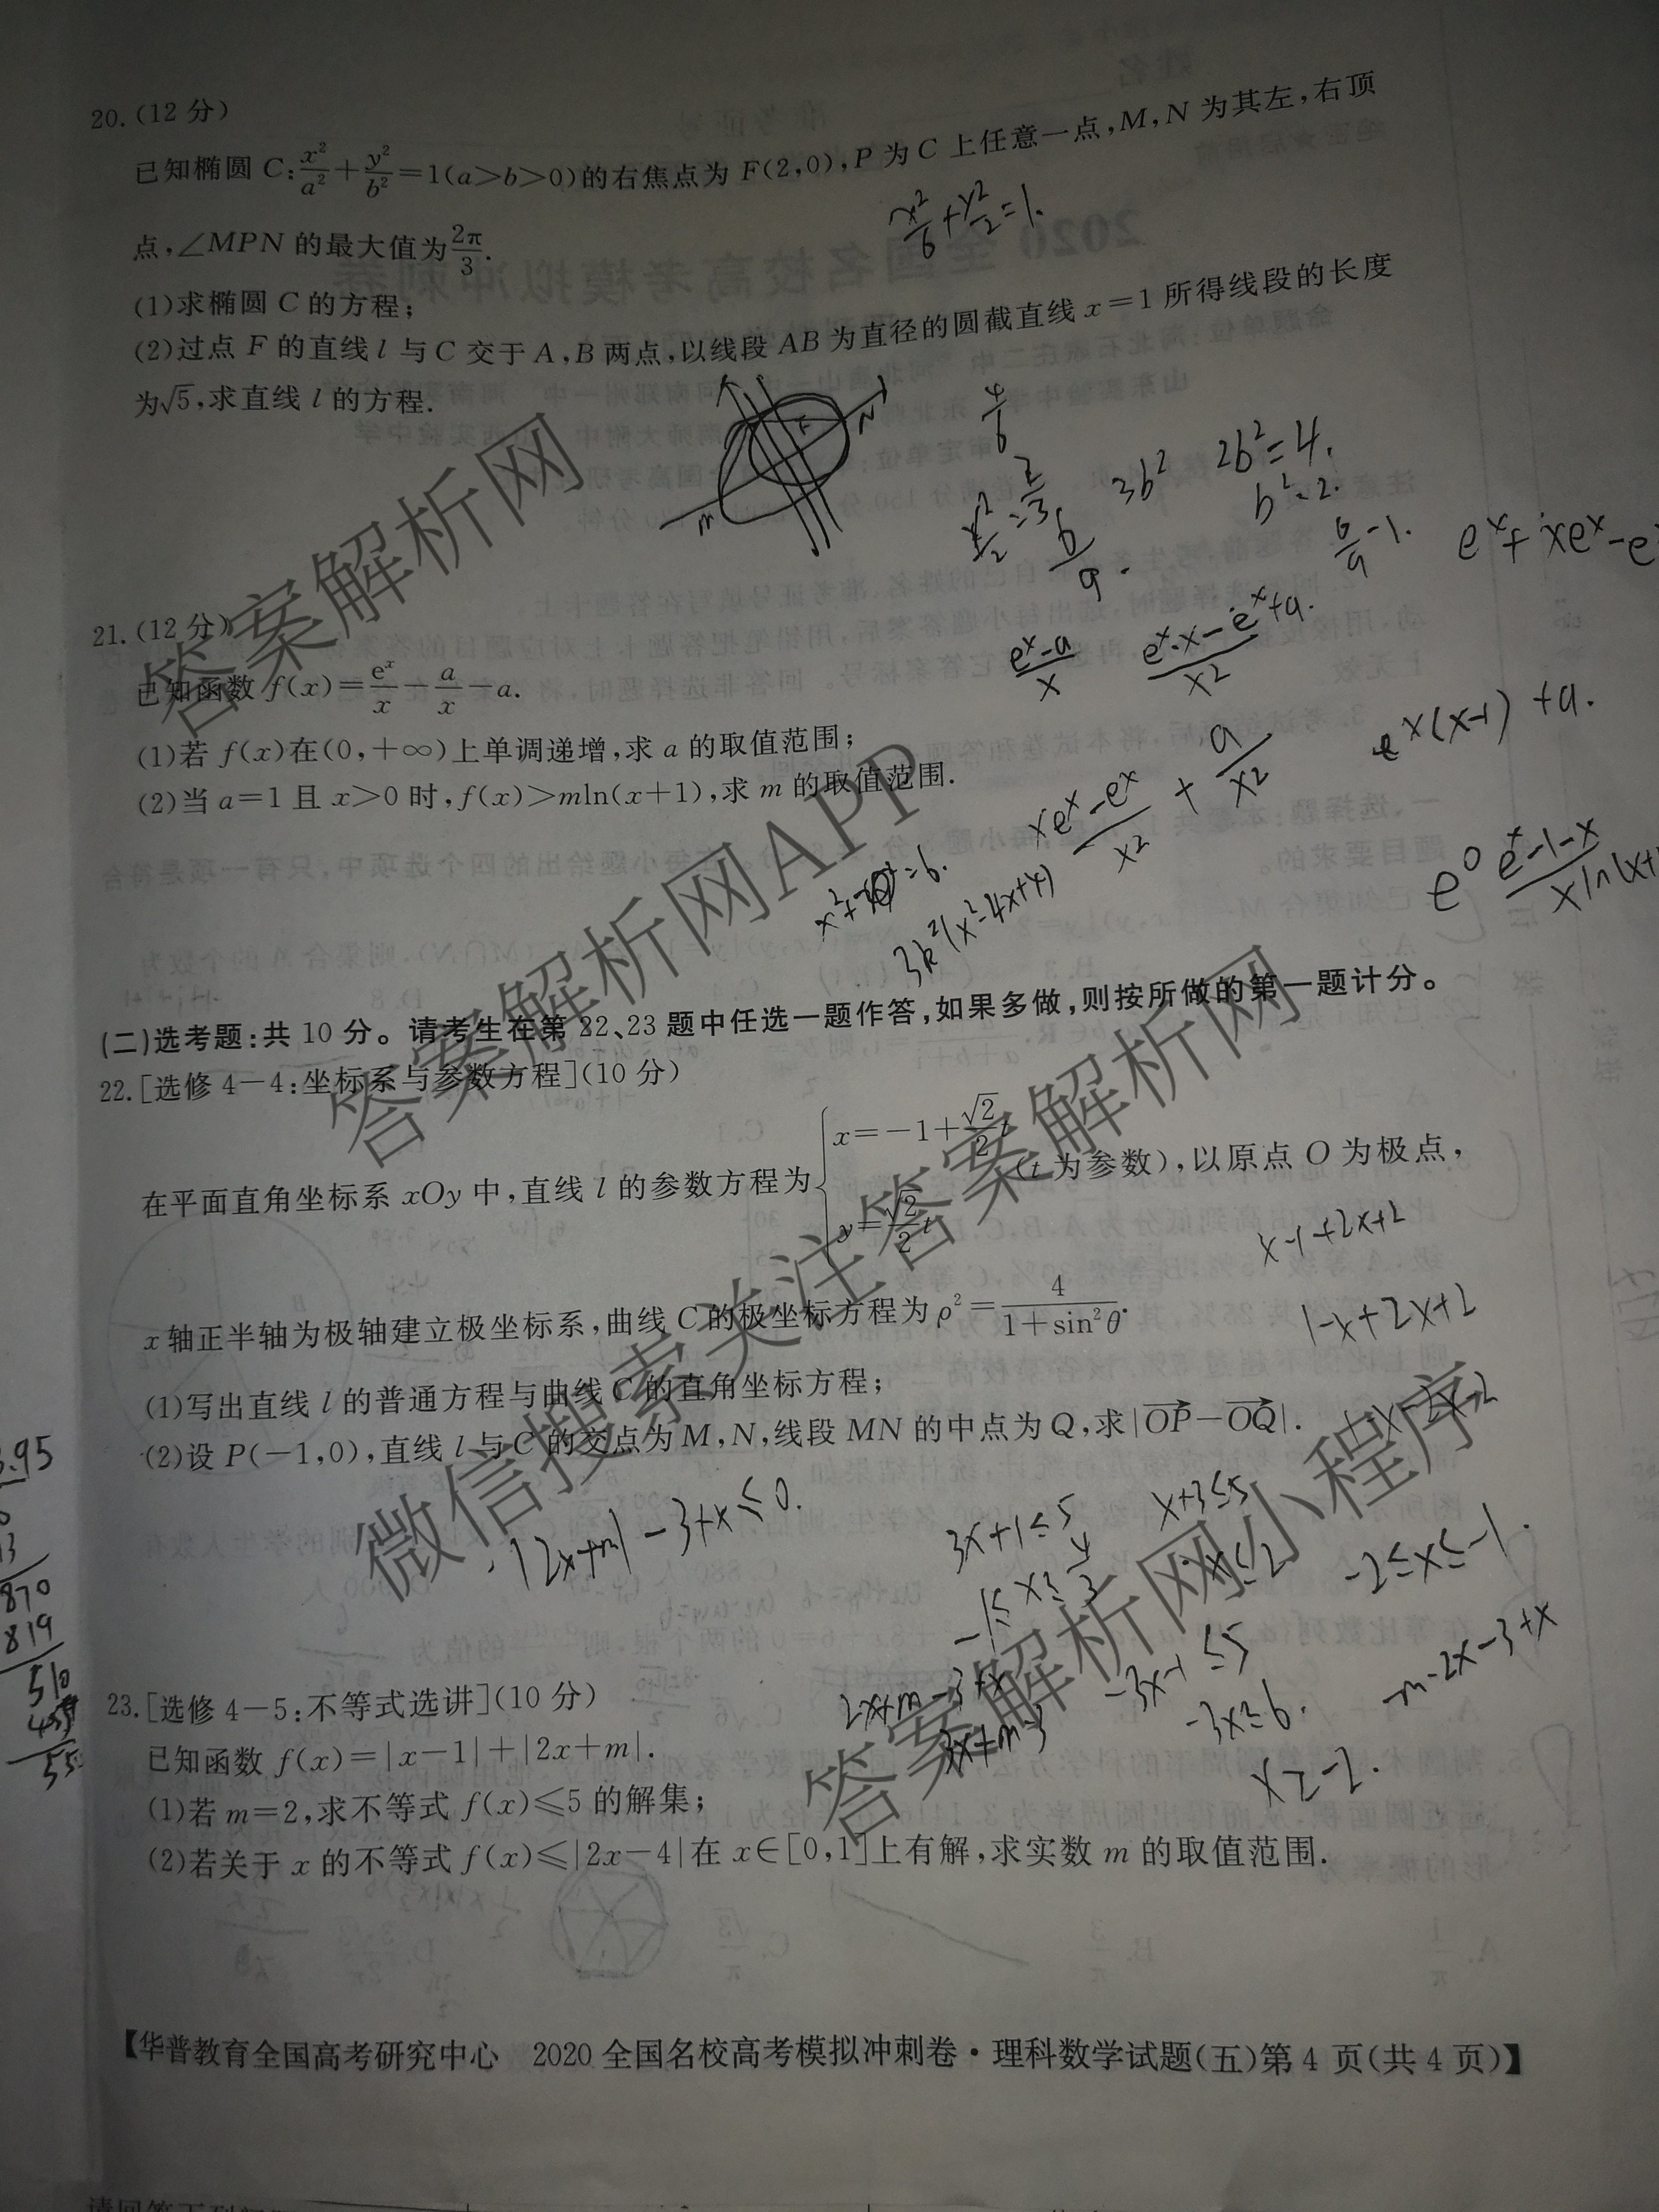 20.(12 分)
已知椭圆 C:x²/a²+y²/b²=1(a>b>0)的右焦点为 F(2,0),P 为 C 上任意一点,M,N 为其左,右顶
点,∠MPN 的最大值为2π/3.
x²/6+y²/2=1.
(1)求椭圆 C 的方程;
(2)过点 F 的直线 l 与 C 交于 A,B 两点,以线段 AB 为直径的圆截直线 x=1 所得线段的长度
为√5,求直线 l 的方程.
3b² 2b²=4.
b²=2.
21.(12 分)
已知函数 f(x)=eˣ/x-a/x-a.
(eˣ-a)/x (eˣ·x-eˣ+a)/x²
(1)若 f(x)在(0,+∞)上单调递增,求 a 的取值范围;
(2)当 a=1 且 x>0 时,f(x)>mln(x+1),求 m 的取值范围.
(xeˣ-eˣ)/x² + a/x²
eˣ(x-1)+a.
3k²(x²-4x+4)
(二)选考题:共 10 分。请考生在第 22、23 题中任选一题作答,如果多做,则按所做的第一题计分。
22.[选修 4-4:坐标系与参数方程](10 分)
在平面直角坐标系 xOy 中,直线 l 的参数方程为{x=-1+√2/2 t
y=√2/2 t
(t 为参数),以原点 O 为极点,
x-1+2x+2
x 轴正半轴为极轴建立极坐标系,曲线 C 的极坐标方程为 ρ²=4/(1+sin²θ).
1-x+2x+2
(1)写出直线 l 的普通方程与曲线 C 的直角坐标方程;
(2)设 P(-1,0),直线 l 与 C 的交点为 M,N,线段 MN 的中点为 Q,求|OP-OQ|.
|2x+m|-3+x≤0.
3x+1≤5 x+3≤5
x≤2 -2≤x≤-1.
-3x-1≤5
-3x≤6.
x≥-2.
2x+m-3+x
3x+m-3
-m-2x-3+x
23.[选修 4-5:不等式选讲](10 分)
已知函数 f(x)=|x-1|+|2x+m|.
(1)若 m=2,求不等式 f(x)⩽5 的解集;
(2)若关于 x 的不等式 f(x)⩽|2x-4|在 x∈[0,1]上有解,求实数 m 的取值范围.
【华普教育全国高考研究中心 2020 全国名校高考模拟冲刺卷·理科数学试题(五)第 4 页(共 4 页)】
3.95
870
819
510
答案解析网
答案解析网APP
微信搜索关注答案解析网
答案解析网小程序